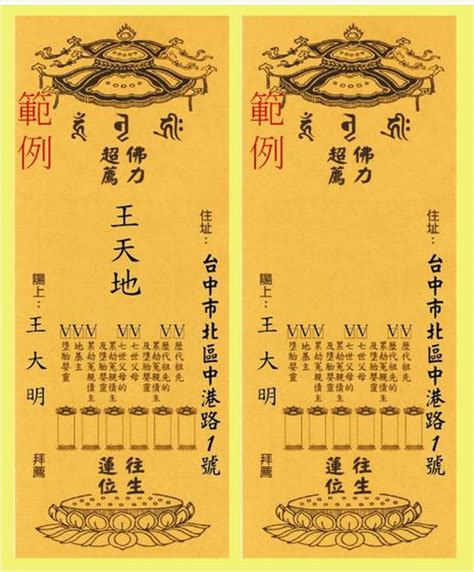 範例
佛力
超薦
住址：台中市北區中港路1號
王天地
歷代祖先的
累劫冤親債主
及墮胎嬰靈
七世父母的
累劫冤親債主
及墮胎嬰靈
地基主
墮胎嬰靈
陽上：王大明 拜薦
往生
蓮位
範例
佛力
超薦
住址：台中市北區中港路1號
歷代祖先的
累劫冤親債主
及墮胎嬰靈
七世父母的
累劫冤親債主
及墮胎嬰靈
地基主
墮胎嬰靈
陽上：王大明 拜薦
往生
蓮位